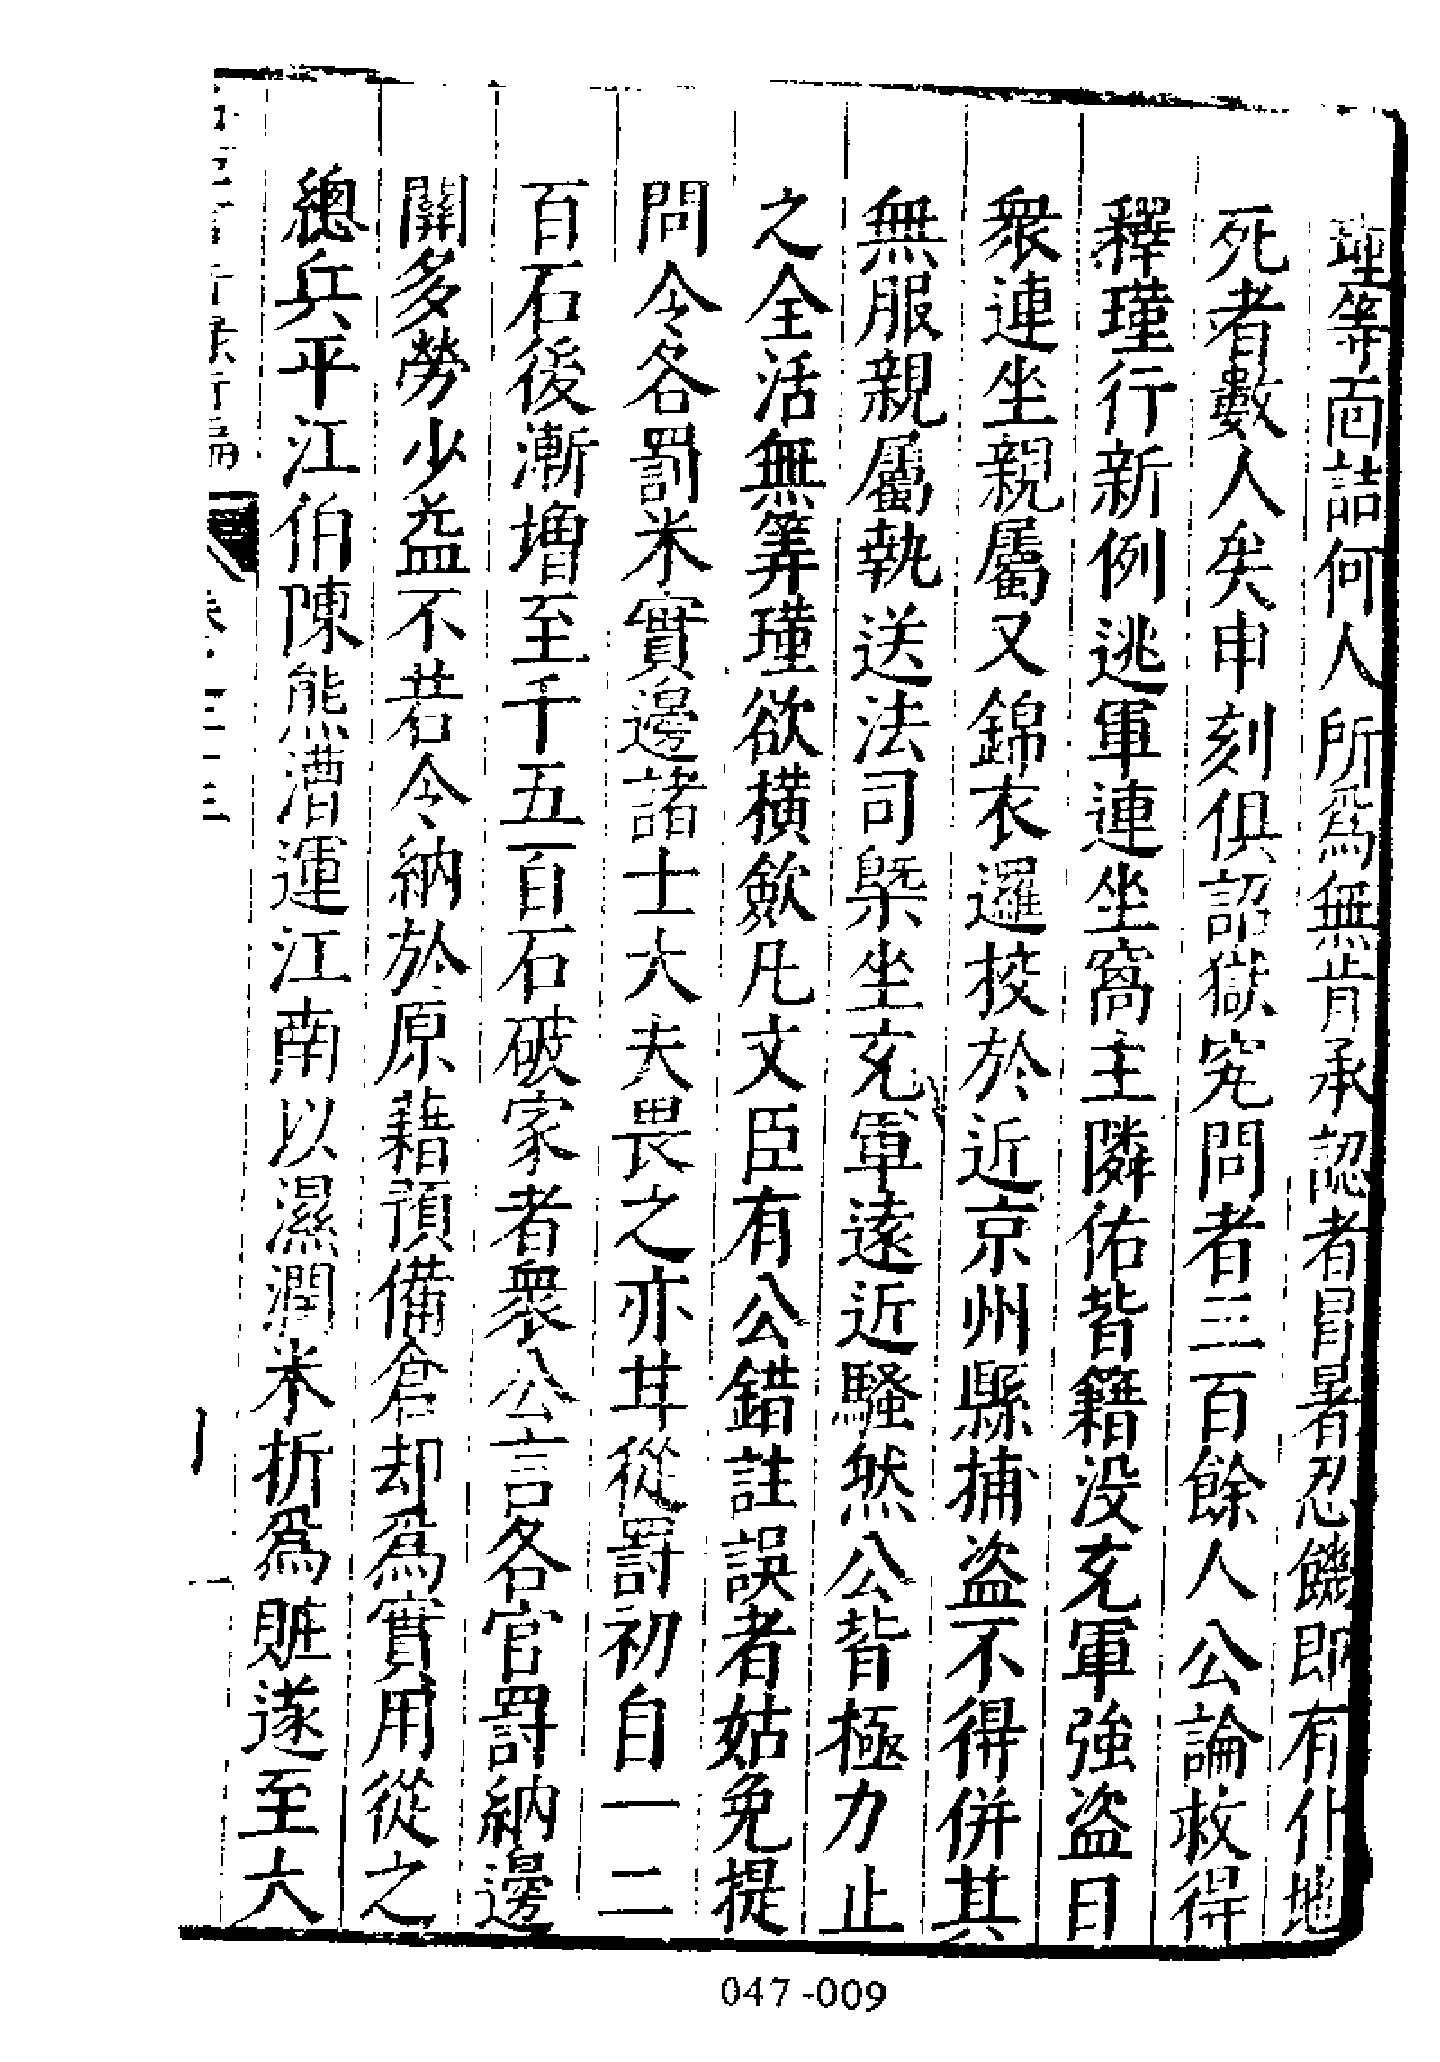 瑾等面詰何人所爲無肯承認者冐暑忍饑即有仆地
死者數人矣申刻俱詔獄究問者三百餘人公論救得
釋瑾行新例逃軍連坐窩主隣佑皆籍没充軍強盗日
衆連坐親屬又錦衣邏挍於近京州縣捕盗不得併其
無服親屬執送法司槩坐充軍遠近騷然公皆極力止
之全活無筭瑾欲横歛凡文臣有公錯註誤者姑免提
問令各罰米實邊諸士大夫畏之亦甘從罸初自一二
百石後漸増至千五百石破家者衆公言各官罸納邊
關多勞少益不若令納於原藉預備倉却爲實用從之
總兵平江伯陳熊漕運江南以濕潤米折爲賍遂至大